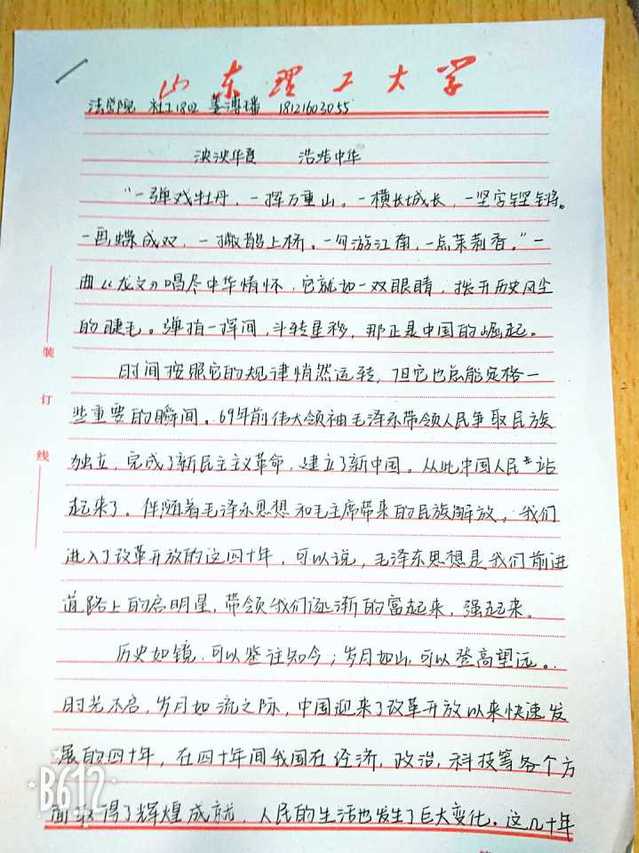 山东理工大学
法学院 社工1802 姜溥璠 18121603055
泱泱华夏 浩浩中华
“一弹戏牡丹,一挥万重山。一横长城长,一竖字铿锵。
一画蝶成双,一撇鹊上桥。一勾游江南,一点茉莉香。”一
曲《龙文》唱尽中华情怀,它就如一双眼睛,拨开历史风尘
的睫毛。弹指一挥间,斗转星移,那正是中国的崛起。
时间按照它的规律悄然运转,但它也总能定格一
些重要的瞬间。69年前伟大领袖毛泽东带领人民争取民族
独立,完成了新民主主义革命,建立了新中国。从此中国人民站
起来了。伴随着毛泽东思想和毛主席带来的民族解放,我们
进入了改革开放的这四十年,可以说,毛泽东思想是我们前进
道路上的启明星,带领我们逐渐的富起来,强起来。
历史如镜,可以鉴往知今;岁月如山,可以登高望远。
时光不启,岁月如流之际,中国迎来了改革开放以来快速发
展的四十年,在四十年间我国在经济,政治,科技等各个方
面取得了辉煌成就,人民的生活也发生了巨大变化。这几十年
装
订
线
B612